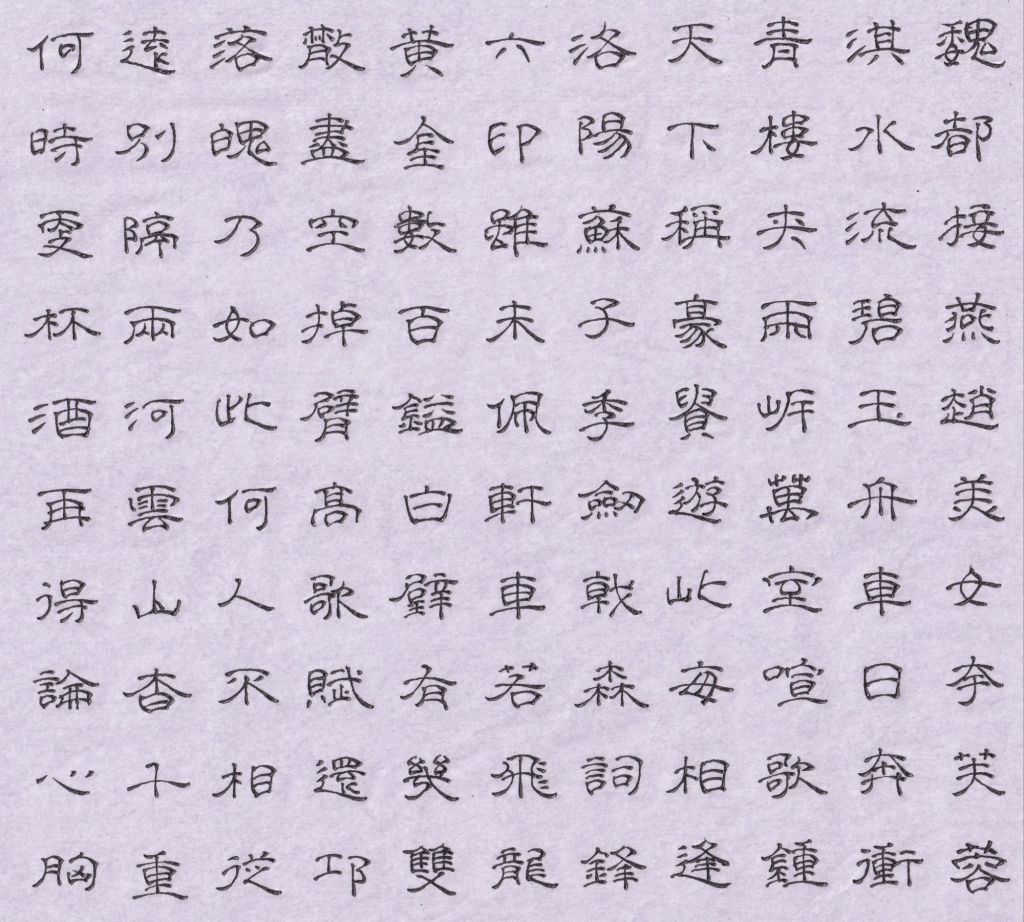 魏都接燕趙美女夸芙蓉
淇水流碧玉舟車日奔衝
青樓夾兩岸萬室喧歌鍾
天下稱豪貴遊此每相逢
洛陽蘇子季劒戟森詞鋒
六印雖未佩軒車若飛龍
黃金數百鎰白璧有幾雙
散盡空掉臂髙歌賦還邛
落魄乃如此何人不相從
遠別隔兩河雲山杳千重
何時更杯酒再得論心胸